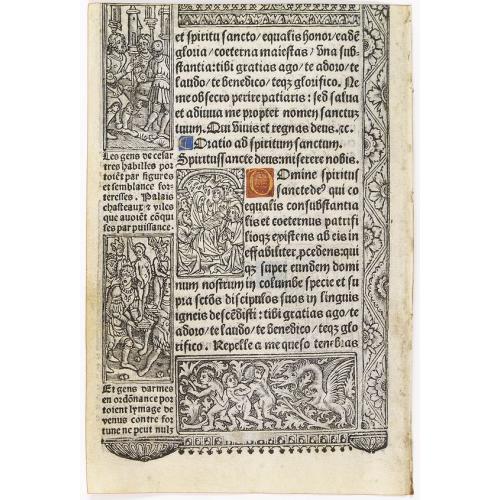 et spiritu sancto / equalis honor / eadē
gloria / coeterna maiestas / vna sub⸗
stantia: tibi gratias ago / te adoro / te
laudo / te benedico / teqʒ glorifico. Ne
me obsecro perire patiaris: sed salua
et adiuua me propter nomen sanctuʒ
tuum. Qui viuis et regnas deus. ꝛc.
Oratio ad spiritum sanctum.
Spiritussancte deus: miserere nobis.
Domine spiritus
sancte deꝰ qui co
equalis consubstantia
lis et coeternus patri fi
lioqʒ existens ab eis in
effabiliter ꝓcedens: qui
qʒ super eundem domi
num nostrum in columbe specie et su
pra sctōs discipulos suos in linguis
igneis descēdisti: tibi gratias ago / te
adoro / te laudo / te benedico / teqʒ glo
rifico. Repelle a me queso tenebras
Les gens de cesar
tres habilles por
toiēt par figures
et semblance for⸗
teresses. Palais
chasteaux ⁊ viles
que auoiēt cōqui
ses par puissance.
Et gens darmes
en ordōnance por
toient lymage de
venus contre for
tune ne peut nulʒ